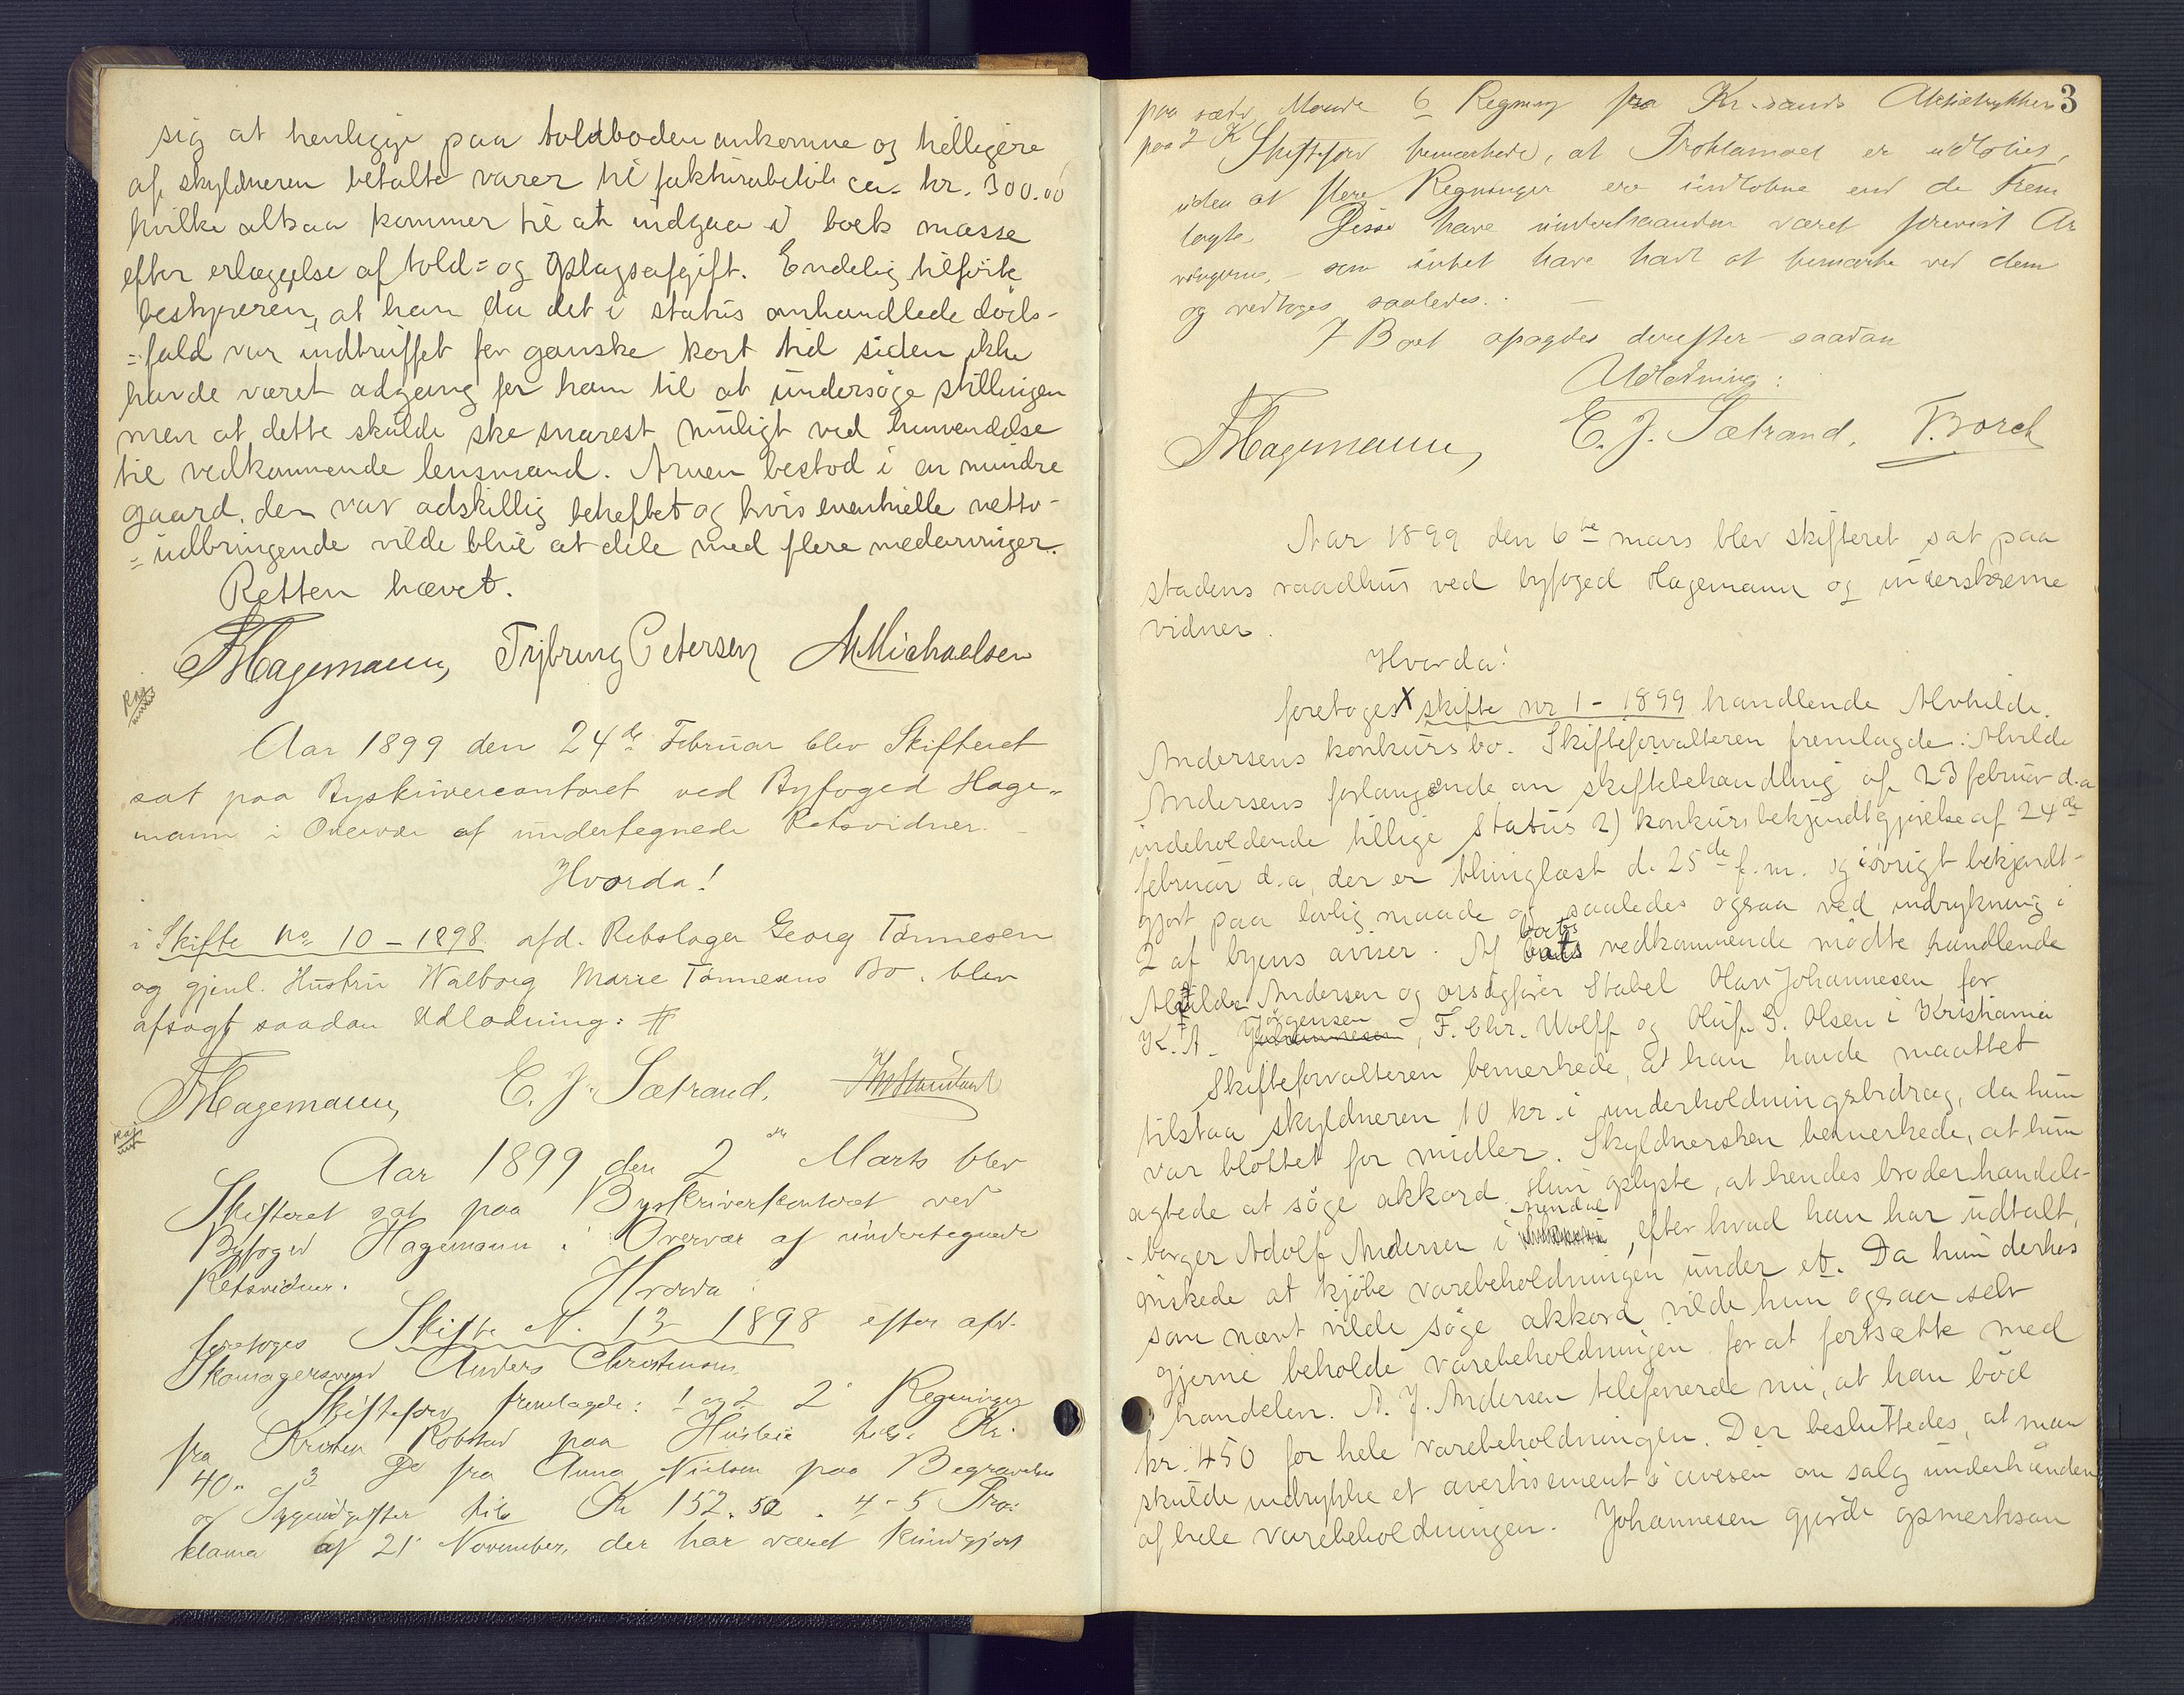 sig at henligge paa toldboden ankomne og helligere
af skyldneren betalte varer til fakturabeløb ca. kr. 300.00
hvilke altsaa kommer til at indgaa i boets masse
efter erlæggelse af told= og oplagsafgift. Endelig tilførte
bestyreren, at han da det i status omhandlede døds-
=fald var indtruffet for ganske kort tid siden ikke
havde været adgang for ham til at undersøge stillingen
men at dette skulde ske snarest muligt ved henvendelse
til vedkommende lensmand. Arven bestod i en mindre
gaard, den var adskillig beheftet og hvis eventuelle netto-
=udbringende vilde blive at dele med flere medarvinger.
Retten hævet.
FHagemann, Trybring Petersen M Michaelsen
Aar 1899 den 24de Februar blev Skifteret
sat paa Byskrivercontoret ved Byfoged Hage-
mann i Overvær af undertegnede Retsvidner. -
Hvorda!
i Skifte No 10 - 1898 afd. Rebslager Georg Tønnesen
og gjenl. Hustru Walborg Marie Tønnesens Bo. blev
afsagt saadan Udlodning: #
FHagemann, E. J. Sætrand.
Aar 1899 den 2den Marts blev
Skifteret sat paa Byskriverkontoret ved
Byfoged Hagemann i Overvær af undertegnede
Retsvidner. Hvorda
foretoges Skifte N. 13 1898 efter afd.
Skomagersvend Anders Christensen
Skifteforv fremlagde: 1 og 2 2 Regninger
fra Kristen Robstad paa Husleie tils. Kr.
40" 3 Do fra Anna Nielsen paa Begravelses
og Sygeudgifter tils Kr 152.50. 4-5 Pro-
klama af 21 November, der har været kundgjort
3
paa sædv Maade 6 Regning fra Kr.sands Aktietrykkeri
paa 2 Kr Skifteforv bemærkede, at Proklamaet er udløbet,
uden at flere Regninger ere indkomne end de frem
lagte. Disse have underhaanden været forevist Ar
vingerne, - som intet have havt at bemærke ved dem
og vedtoges saaledes. -
I Boet afsagdes derefter saadan
Udlodning:
FHagemann, E. J. Sætrand. F. Borch
Aar 1899 den 6te mars blev skifteret sat paa
stadens raadhus ved byfoged Hagemann og underskrevne
vidner.
Hvorda!
foretoges x skifte nr 1 - 1899 handlende Alvhilde
Andersens konkursbo. Skifteforvalteren fremlagde: Alvilde
Andersens forlangende om skiftebehandling af 23 februar d.a
indeholdende tillige status 2) konkursbekjendtgjørelse af 24de
februar d.a, der er thinglæst d. 25de f.m. og iøvrigt bekjendt-
gjort paa lovlig maade og saaledes ogsaa ved indrykning i
2 af byens aviser. Af boets vedkommende mødte handlende
Alvilde Andersen og orsagfører Stabel Olav Johannesen for
K. A. Jørgensen, F. Chr. Wolff og Oluf G. Olsen i Kristiania
Skifteforvalteren bemerkede, at han havde maattet
tilstaa skyldneren 10 kr. i underholdningsbidrag, da hun
var blottet for midler. Skyldnersken bemerkede, at hun
agtede at søge akkord. Hun oplyste, at hendes broder handels-
-borger Adolf Andersen i Arendal, efter hvad han har udtalt,
ønskede at kjøbe varebeholdningen under et. Da hun derhos
som nævnt vilde søge akkord vilde hun ogsaa selv
gjerne beholde varebeholdningen for at fortsætte med
handelen. A. J. Andersen telefonerde nu, at han bød
kr. 450 for hele varebeholdningen. Der besluttedes, at man
skulde indrykke et avertissement i avisen om salg underhånden
af hele varebeholdningen. Johannesen gjorde opmerksom